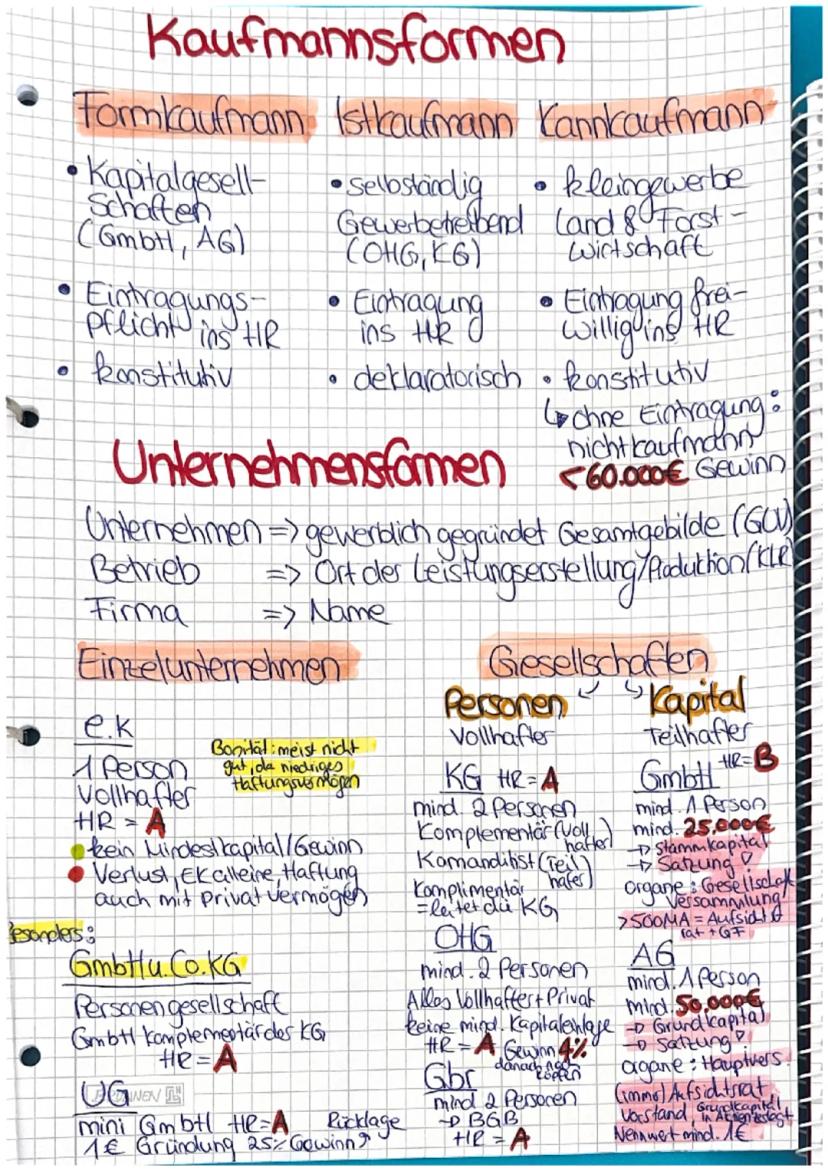 Kaufmannsformen
Formkaufmann
• Kapitalgesell-
schaften
(GmbH, AG)
• Eintragungs-
pflicht ins HR
• konstitutiv
Istkaufmann
• selbständig
Gewerbetreibend
(OHG, KG)
• Eintragung
ins HR
• deklaratorisch
Kannkaufmann
• kleingewerbe
Land & Forst-
wirtschaft
• Eintragung frei-
willig ins HR
• konstitutiv
↳ ohne Eintragung:
nichtkaufmann
<60.000€ Gewinn
Unternehmensformen
Unternehmen => gewerblich gegründet Gesamtgebilde (GUV)
Betrieb => Ort der Leistungserstellung/Produktion (KLR)
Firma => Name
Einzelunternehmen
e.K
1 Person
Vollhafter
HR = A
Bonität: meist nicht
gut, da niedriges
Haftungsvermögen
kein Mindestkapital/Gewinn
Verlust, EK alleine, Haftung
auch mit Privatvermögen
Besonders:
GmbH u. Co. KG
Personengesellschaft
GmbH Komplementär des KG
HR = A
UG
mini GmbH HR = A Rücklage
1€ Gründung 25% Gewinn
Gesellschaften
Personen
Vollhafter
KG HR = A
mind. 2 Personen
Komplementär (Voll
hafter)
Komanditist (Teil
hafer)
Komplimentär
= leitet die KG
OHG
mind. 2 Personen
Alles Vollhafter + Privat
keine mind. Kapitaleinlage
HR = A Gewinn 4%
danach nach
Köpfen
Gbr
mind 2 Personen
→ BGB
HR = A
Kapital
Teilhafter
GmbH HR = B
mind. 1 Person
mind. 25.000€
→ Stammkapital
→ Satzung
Organe: Gesellschaft
Versammlung/
>500MA = Aufsichts
rat + GF
AG
mind. 1 Person
Mind. 50.000€
→ Grundkapital
→ Satzung
organe: Hauptvers.
(immer) Aufsichtsrat
Vorstand, Grundkapital
in Aktien zerlegt
Nennwert mind. 1€